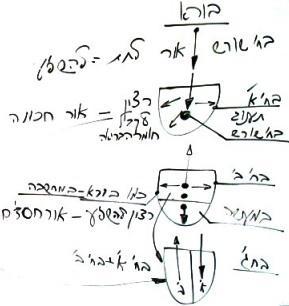 בורא
בח' שורש אור לתת = להשפיע
בח' א'
תענוג
בח' שורש
רצון – אור חכמה
חומר הבריאה
בח' ב'
כמו בורא – במחשבה
רצון להשפיע – אור חסדים
בח' ג'
בח' א' + בח' ב'
א' ב'